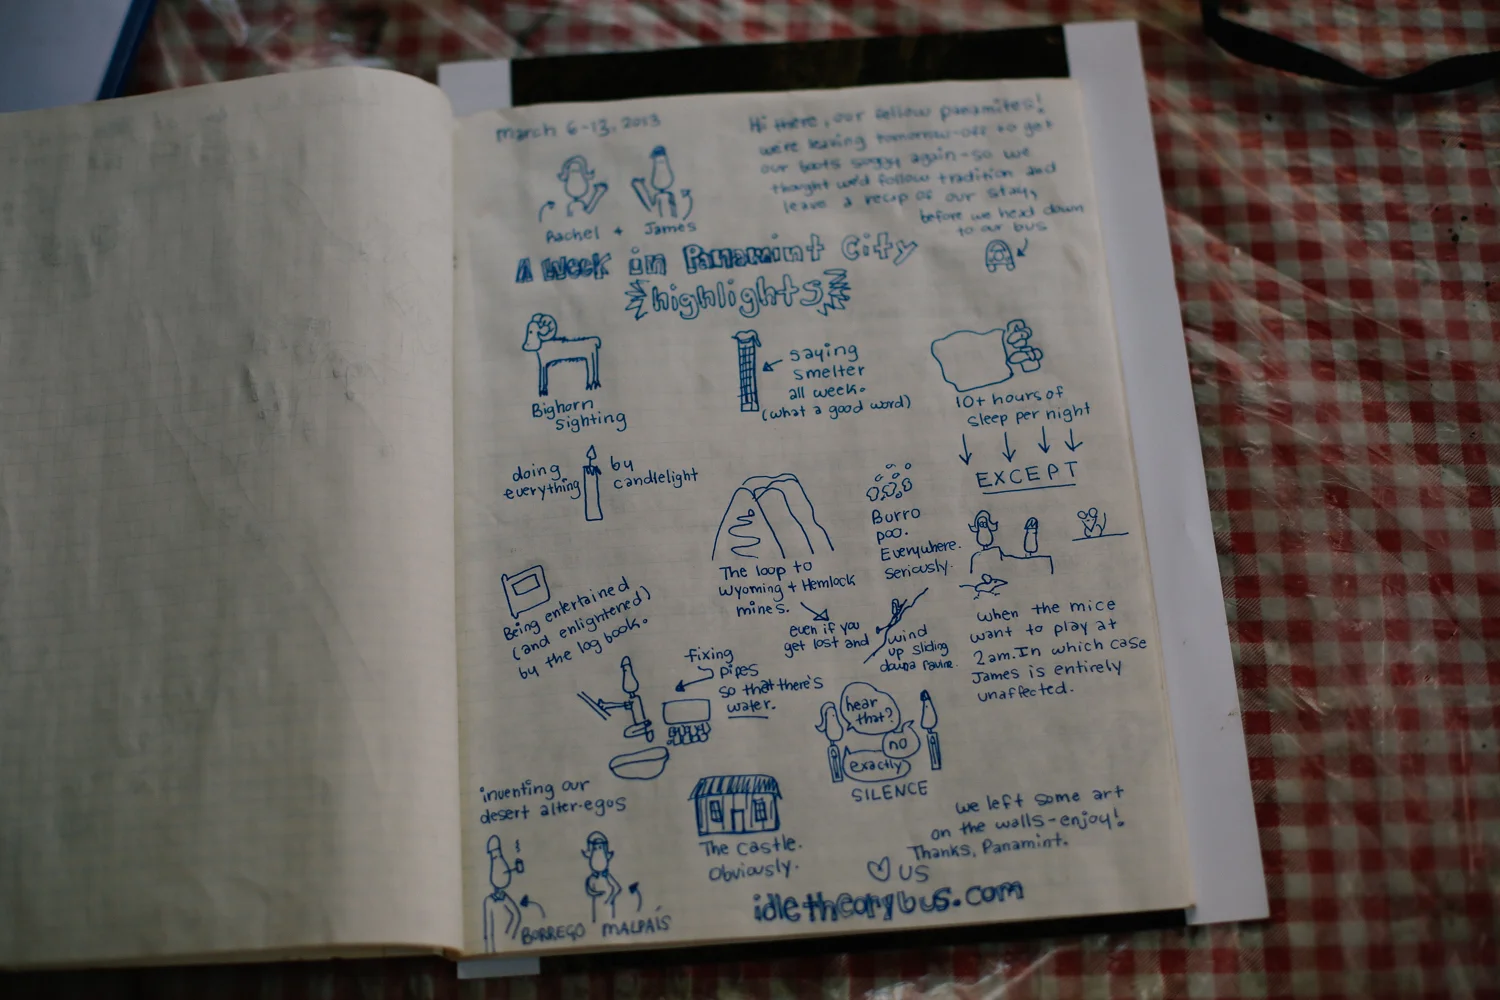 march 6-13, 2013
Hi there, our fellow panamites!
we're leaving tomorrow-off to get
our boots soggy again-so we
thought we'd follow tradition and
leave a recap of our stay,
before we head down
to our bus
Rachel + James
A Week in Panamint City
highlights
Bighorn
sighting
saying
smelter
all week.
(what a good word)
10+ hours of
sleep per night
EXCEPT
doing
everything
by
candlelight
The loop to
Wyoming + Hemlock
mines.
even if you
get lost and
wind
up sliding
down a ravine.
Burro
poo.
Everywhere.
Seriously.
when the mice
want to play at
2am. In which case
James is entirely
unaffected.
Being entertained
(and enlightened)
by the log book.
fixing
pipes
so that there's
water.
hear
that?
no
exactly
SILENCE
inventing our
desert alter-egos
BORREGO MALPAÍS
The Castle.
Obviously.
we left some art
on the walls-enjoy!
Thanks, Panamint.
♡ US
idletheorybus.com